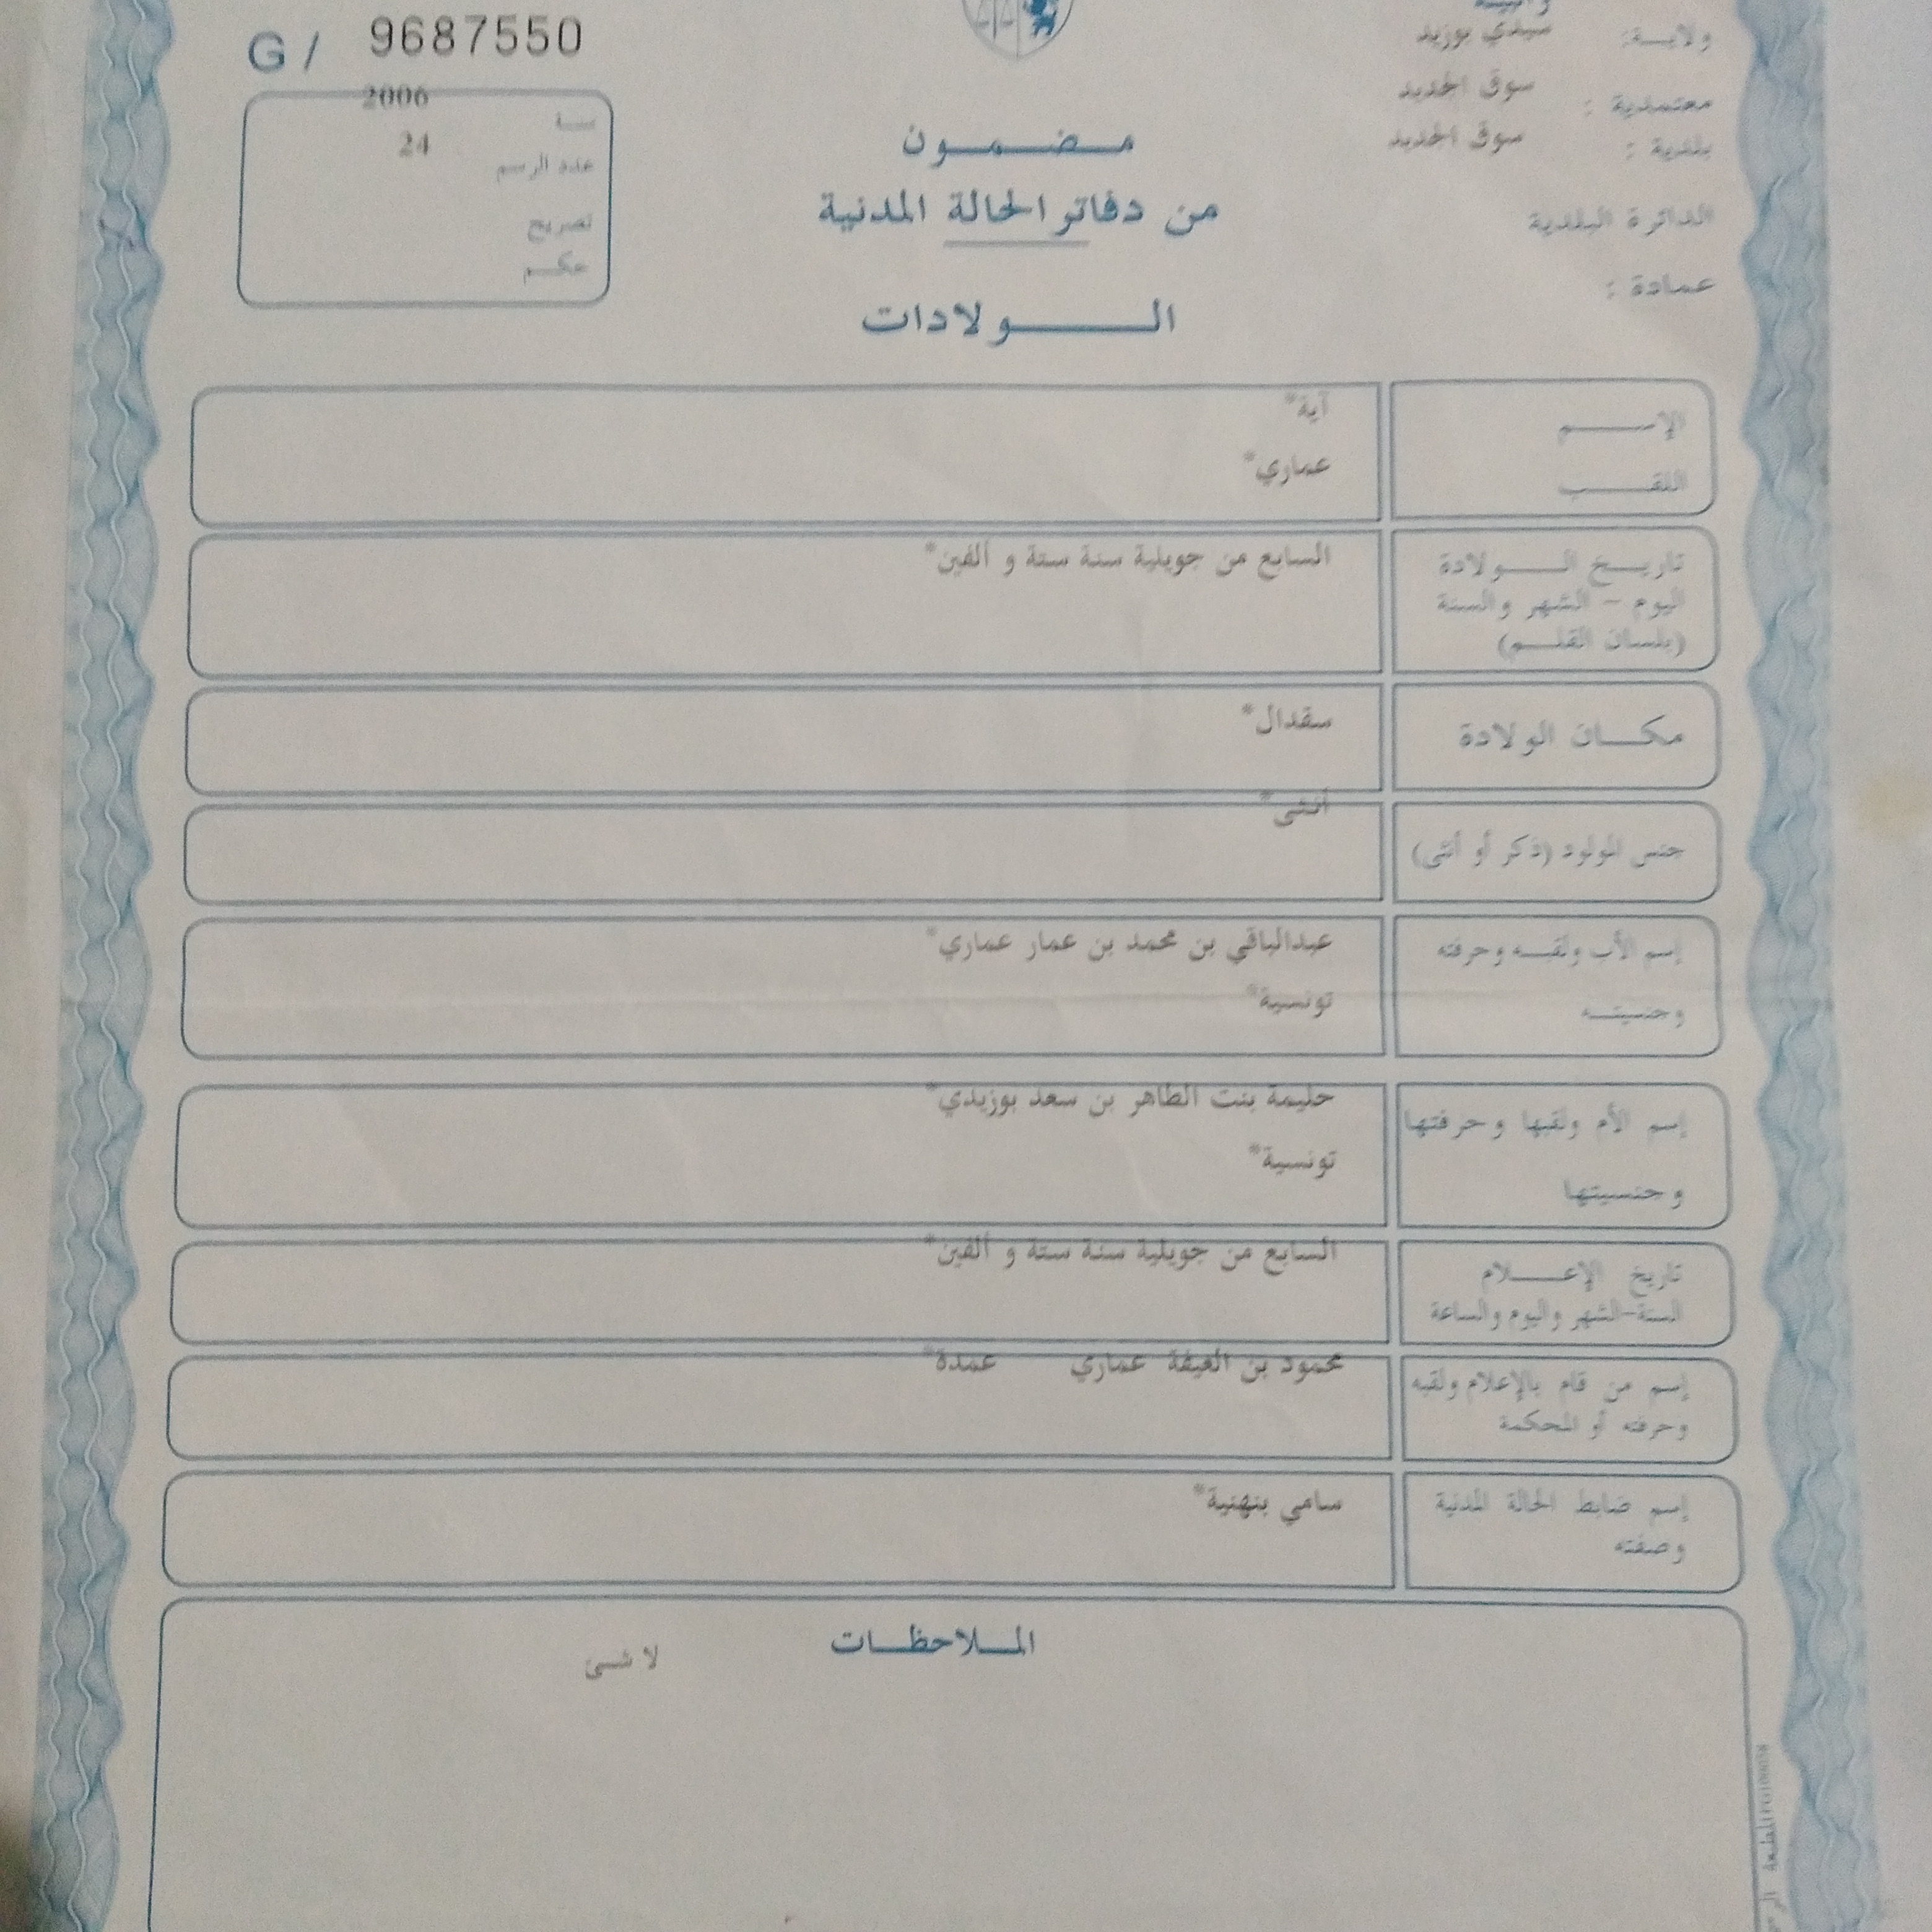 G / 9687550
ولايـــة: سيدي بوزيد
معتمدية : سوق الجديد
بلدية : سوق الجديد
الدائرة البلدية
عمادة :
سنـــة 2006
عدد الرسم 24
تصريح
حكـــم
مـــضـــمـــون
من دفاتر الحالة المدنية
الـــــولادات
الإســـــم آية*
اللقـــــب عماري*
تاريـــخ الـــــولادة السابع من جويلية سنة ستة و ألفين*
اليوم - الشهر والسنة
(بلسان القلـــم)
مكـــان الولادة سقدال*
جنس المولود (ذكر أو أنثى) أنثى*
إسم الأب ولقبـــه وحرفته عبدالباقي بن محمد بن عمار عماري*
وجنسيتـــه تونسية*
إسم الأم ولقبها وحرفتها حليمة بنت الطاهر بن سعد بوزيدي*
وجنسيتها تونسية*
تاريخ الإعـــــلام السابع من جويلية سنة ستة و ألفين*
السنة-الشهر واليوم والساعة
إسم من قام بالإعلام ولقبه محمود بن العيفة عماري عمدة*
وحرفته أو المحكمة
إسم ضابط الحالة المدنية سامي بنهنية*
وصفته
المـــلاحظـــات
لا شـــئ